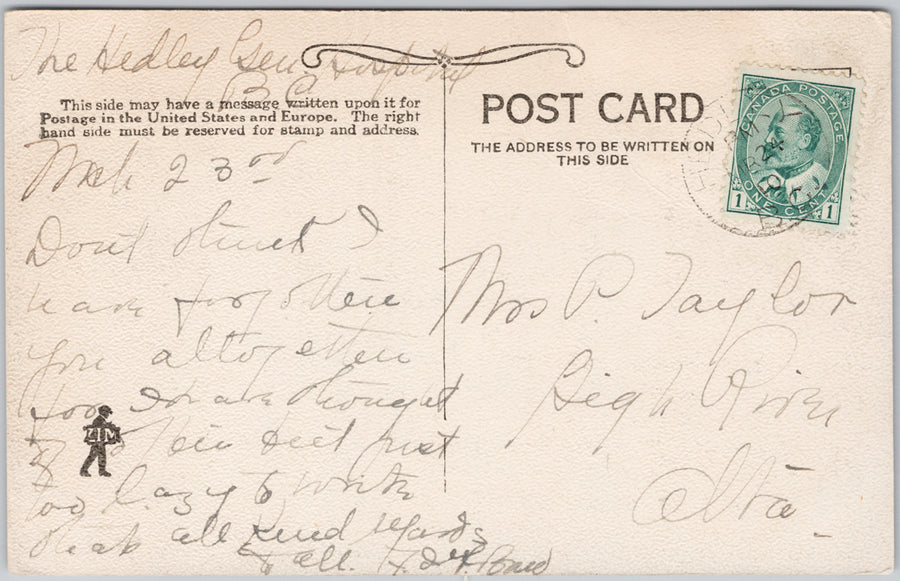 The Hedley Gen Hospital
B.C.
This side may have a message written upon it for
Postage in the United States and Europe. The right
hand side must be reserved for stamp and address.
Mch 23rd
Dont think I
have forgotten
you altogether
for I have thought
of often but just
too lazy to write
that all Kind regards
to all.
ZIM
POST CARD
THE ADDRESS TO BE WRITTEN ON
THIS SIDE
CANADA POSTAGE
1 ONE CENT 1
24
Mrs P. Taylor
High River
Alta.